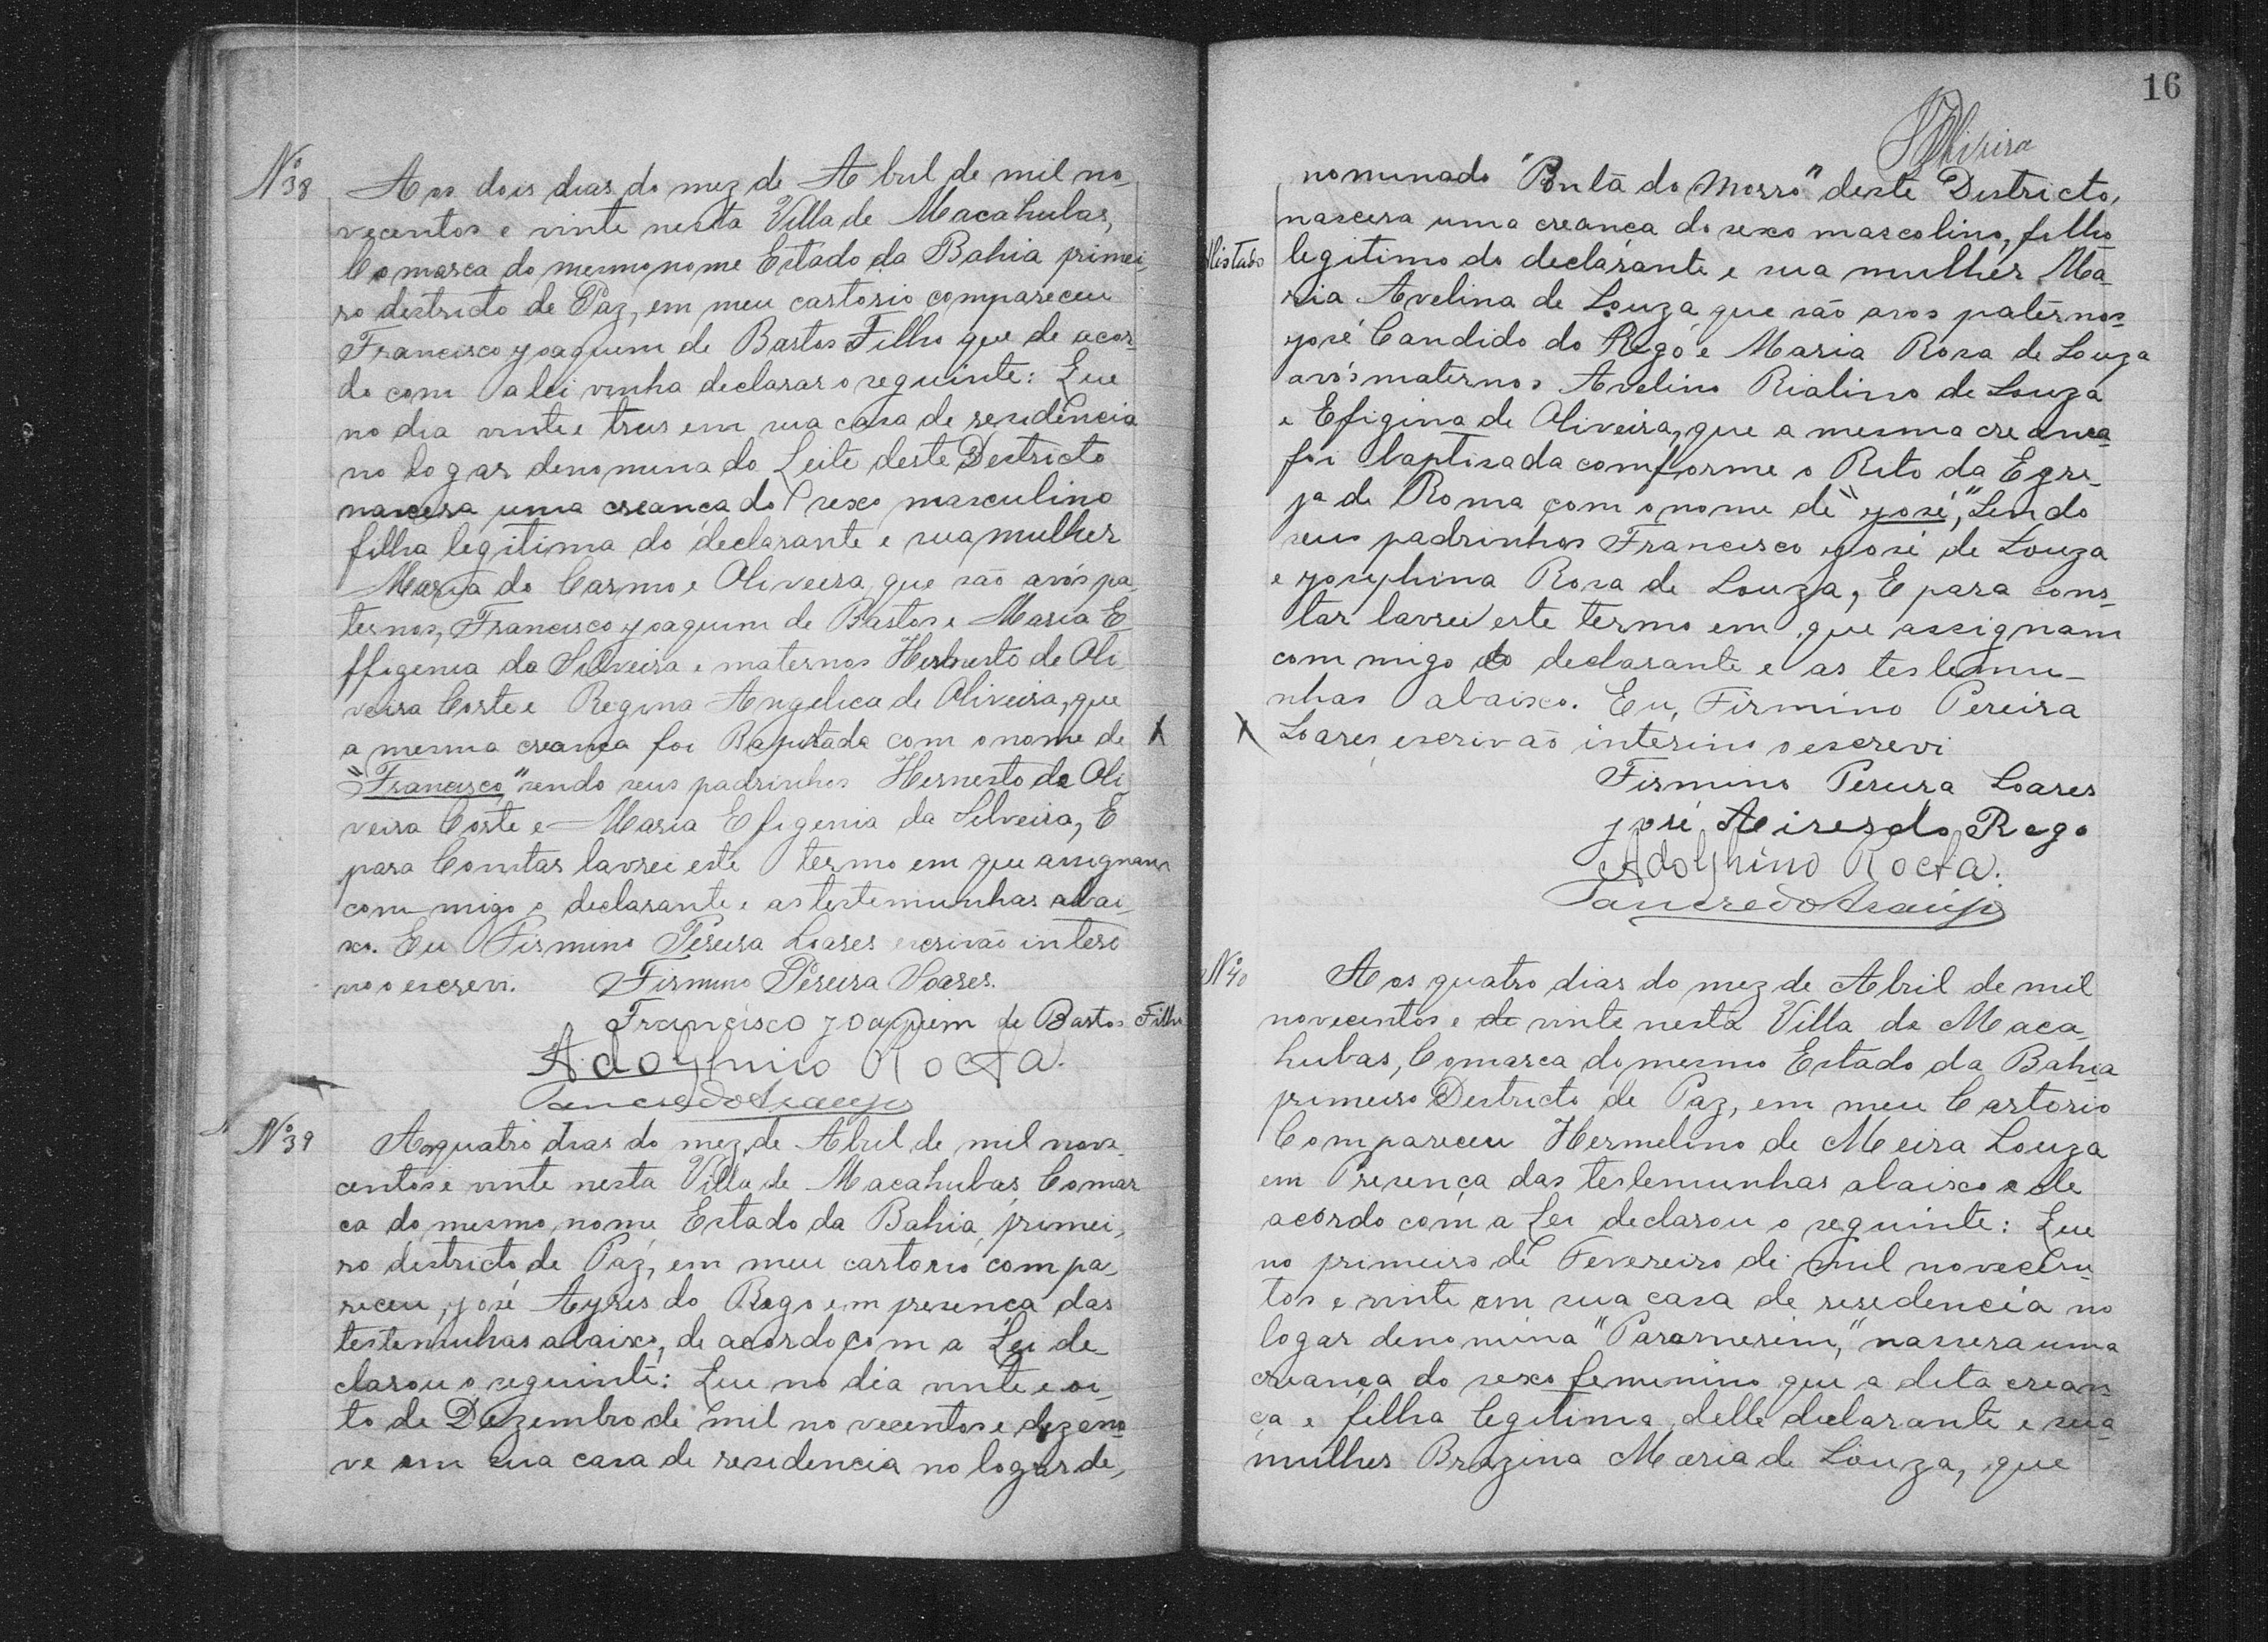 Nº 38
Aos dois dias do mez de Abril de mil no-
vecentos e vinte nesta Villa de Macahubas,
Comarca do mesmo nome Estado da Bahia primei-
ro destricto de Paz, em meu cartorio compareceu
Francisco Joaquim de Bastos Filho que de acor-
do com a lei vinha declarar o seguinte: Que
no dia vinte e tres em sua casa de residencia
no logar denominado Leite deste Destricto
nascera uma creança do sexo masculino
filha legitima do declarante e sua mulher
Maria do Carmo e Oliveira, que são avós pa-
ternos, Francisco Joaquim de Bastos e Maria E-
ffigenia da Silveira e maternos Hernesto de Oli-
veira Coste e Regina Angelica de Oliveira, que
a mesma creança foi Baptisada com o nome de X
"Francisco" sendo seus padrinhos Hernesto de Oli-
veira Coste e Maria Efigenia da Silveira, E
para Constar lavrei este termo em que assignam
com migo o declarante e as testemunhas abai-
xo. Eu Firmino Pereira Soares escrivão interi
no o escrevi. Firmino Pereira Soares.
Francisco Joaquim de Bastos Filho
Adolphino Rocha.
Tancredo Araujo
Nº 39
Aos quatro dias do mez de Abril de mil nove-
centos e vinte nesta Villa de Macahubas Comar
ca do mesmo nome Estado da Bahia, primei-
ro destricto de Paz, em meu cartorio compa-
receu, José Ayres do Rego em presença das
testemunhas abaixo, de acordo com a Lei de-
clarou o seguinte: Que no dia vinte e oi-
to de Dezembro de mil novecentos e dezeno-
ve em sua casa de residencia no logar de-
16
Oliveira
nominado "Ponta do Morro" deste Destricto,
nascera uma creança do sexo mascolino, filho
Alistado
legitimo do declarante e sua mulher Ma-
ria Avelina de Souza que são avos paternos
José Candido do Rego e Maria Rosa de Souza
avós maternos Avelino Rialino de Souza
e Efigina de Oliveira, que a mesma creança
foi baptisada comforme o Rito da Egre-
ja de Roma com o nome de "José", Sendo
seus padrinhos Francisco José de Souza
e Josephina Rosa de Souza, E para cons-
tar lavrei este termo em que assignam
com migo o declarante e as testemu-
nhas abaixo. Eu, Firmino Pereira
X Soares, escrivão interino o escrevi
Firmino Pereira Soares
José Aires do Rego
Adolphino Rocha.
Tancredo Araujo
Nº 40
Aos quatro dias do mez de Abril de mil
novecentos e de vinte nesta Villa de Maca-
hubas, Comarca do mesmo Estado da Bahia
primeiro Destricto de Paz, em meu Cartorio
Compareceu Hermelino de Meira Souza
em Presença das testemunhas abaixo e de
acordo com a Lei declarou o seguinte: Que
no primeiro de Fevereiro de mil novecen-
tos e vinte em sua casa de residencia no
logar denomina "Paramerim," nascera uma
creança do sexo feminino que a dita crean-
ça e filha legitima delle declarante e sua
mulher Brazina Maria de Souza, que